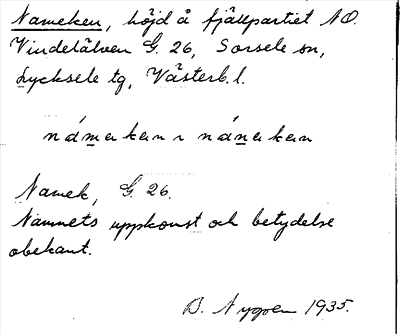 Nameken, höjd å fjällpartiet NO.
Vindelälven G. 26, Sorsele sn,
Lycksele tg, Västerb. l.
námeken ~ nánekan
Namek, G. 26.
Namnets uppkomst och betydelse
obekant.
B. Nygren 1935.